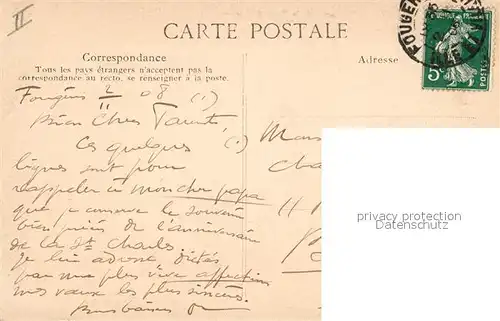 II
CARTE POSTALE
Correspondance
Tous les pays étrangers n'acceptent pas la
correspondance au recto, se renseigner à la poste.
Adresse
FOUGER
5c
POSTES
Fougères 2/11 08 (1)
Bien Chers Parents,
Ces quelques (1)
lignes sont pour
rappeler à mon cher papa
que je conserve le souvenir
bien précis de l'anniversaire
de la St Charles
Je lui adresse dictés
par ma plus vive affection
mes vœux les plus sincères.
Bons baisers
privacy protection
Datenschutz